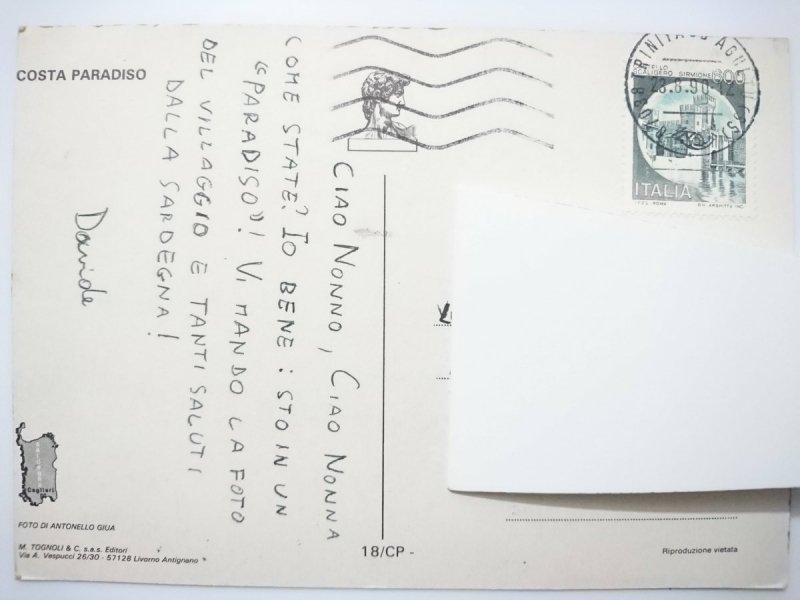 COSTA PARADISO
CIAO NONNO, CIAO NONNA
COME STATE? IO BENE: STO IN UN
"PARADISO"! VI MANDO LA FOTO
DEL VILLAGGIO E TANTI SALUTI
DALLA SARDEGNA!
Davide
SCALIGERO SIRMIONE
600
23.8.90
ITALIA
SARDEGNA
Cagliari
FOTO DI ANTONELLO GIUA
M. TOGNOLI & C. s.a.s. Editori
Via A. Vespucci 26/30 - 57128 Livorno Antignano
18/CP -
Riproduzione vietata